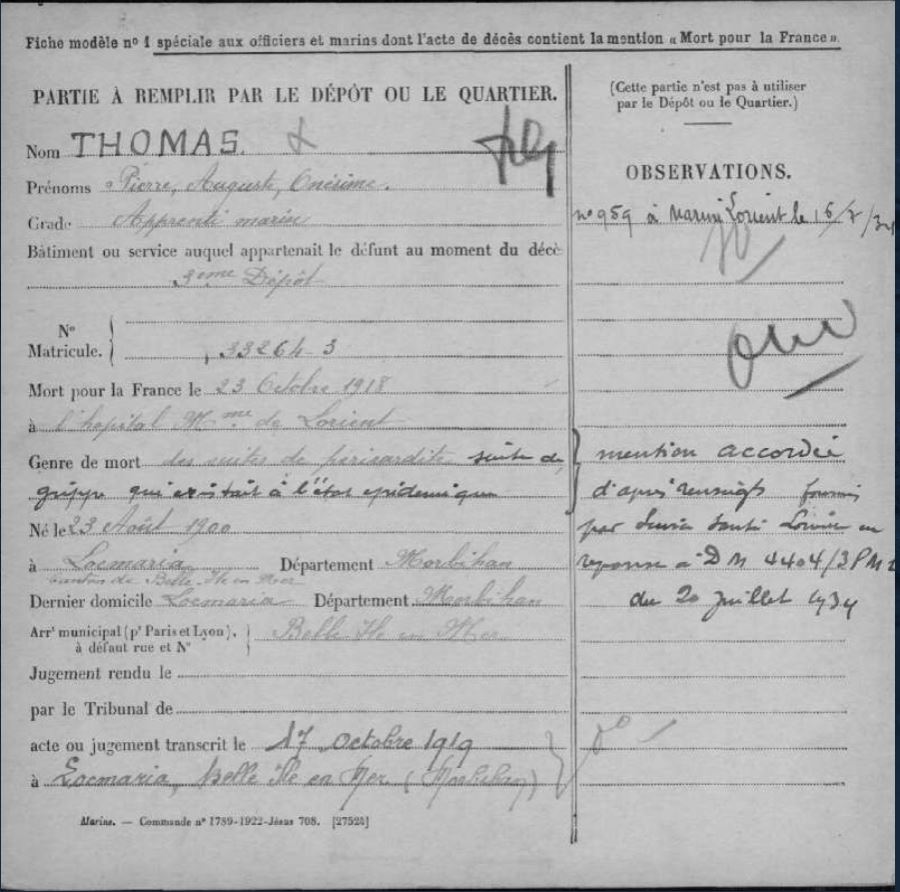 Fiche modèle nº 1 spéciale aux officiers et marins dont l'acte de décès contient la mention « Mort pour la France ».
PARTIE À REMPLIR PAR LE DÉPÔT OU LE QUARTIER.
Nom THOMAS.
Prénoms Pierre, Auguste, Onésime.
Grade Apprenti marin
Bâtiment ou service auquel appartenait le défunt au moment du décè
3ème Dépôt
Nº
Matricule. 33264-3
Mort pour la France le 23 Octobre 1918
à l'hopital Mme de Lorient
Genre de mort des suites de péricardite suite de
grippe qui existait à l'état epidemique
Né le 23 Août 1900
à Locmaria Département Morbihan
canton de Belle Ile en Mer
Dernier domicile Locmaria Département Morbihan
Arrt municipal (pr Paris et Lyon), Belle Ile en Mer
à défaut rue et Nº
Jugement rendu le
par le Tribunal de
acte ou jugement transcrit le 17 Octobre 1919
à Locmaria, Belle Ile en Mer (Morbihan)
Marine. — Commande nº 1789-1922-Jésus 708. [27524]
(Cette partie n'est pas à utiliser
par le Dépôt ou le Quartier.)
OBSERVATIONS.
nº 959 à Marine Lorient le
mention accordée
d'après renseigts fournis
par Santé en
reponse à DM 4404/3PM2
du 20 juillet 1934